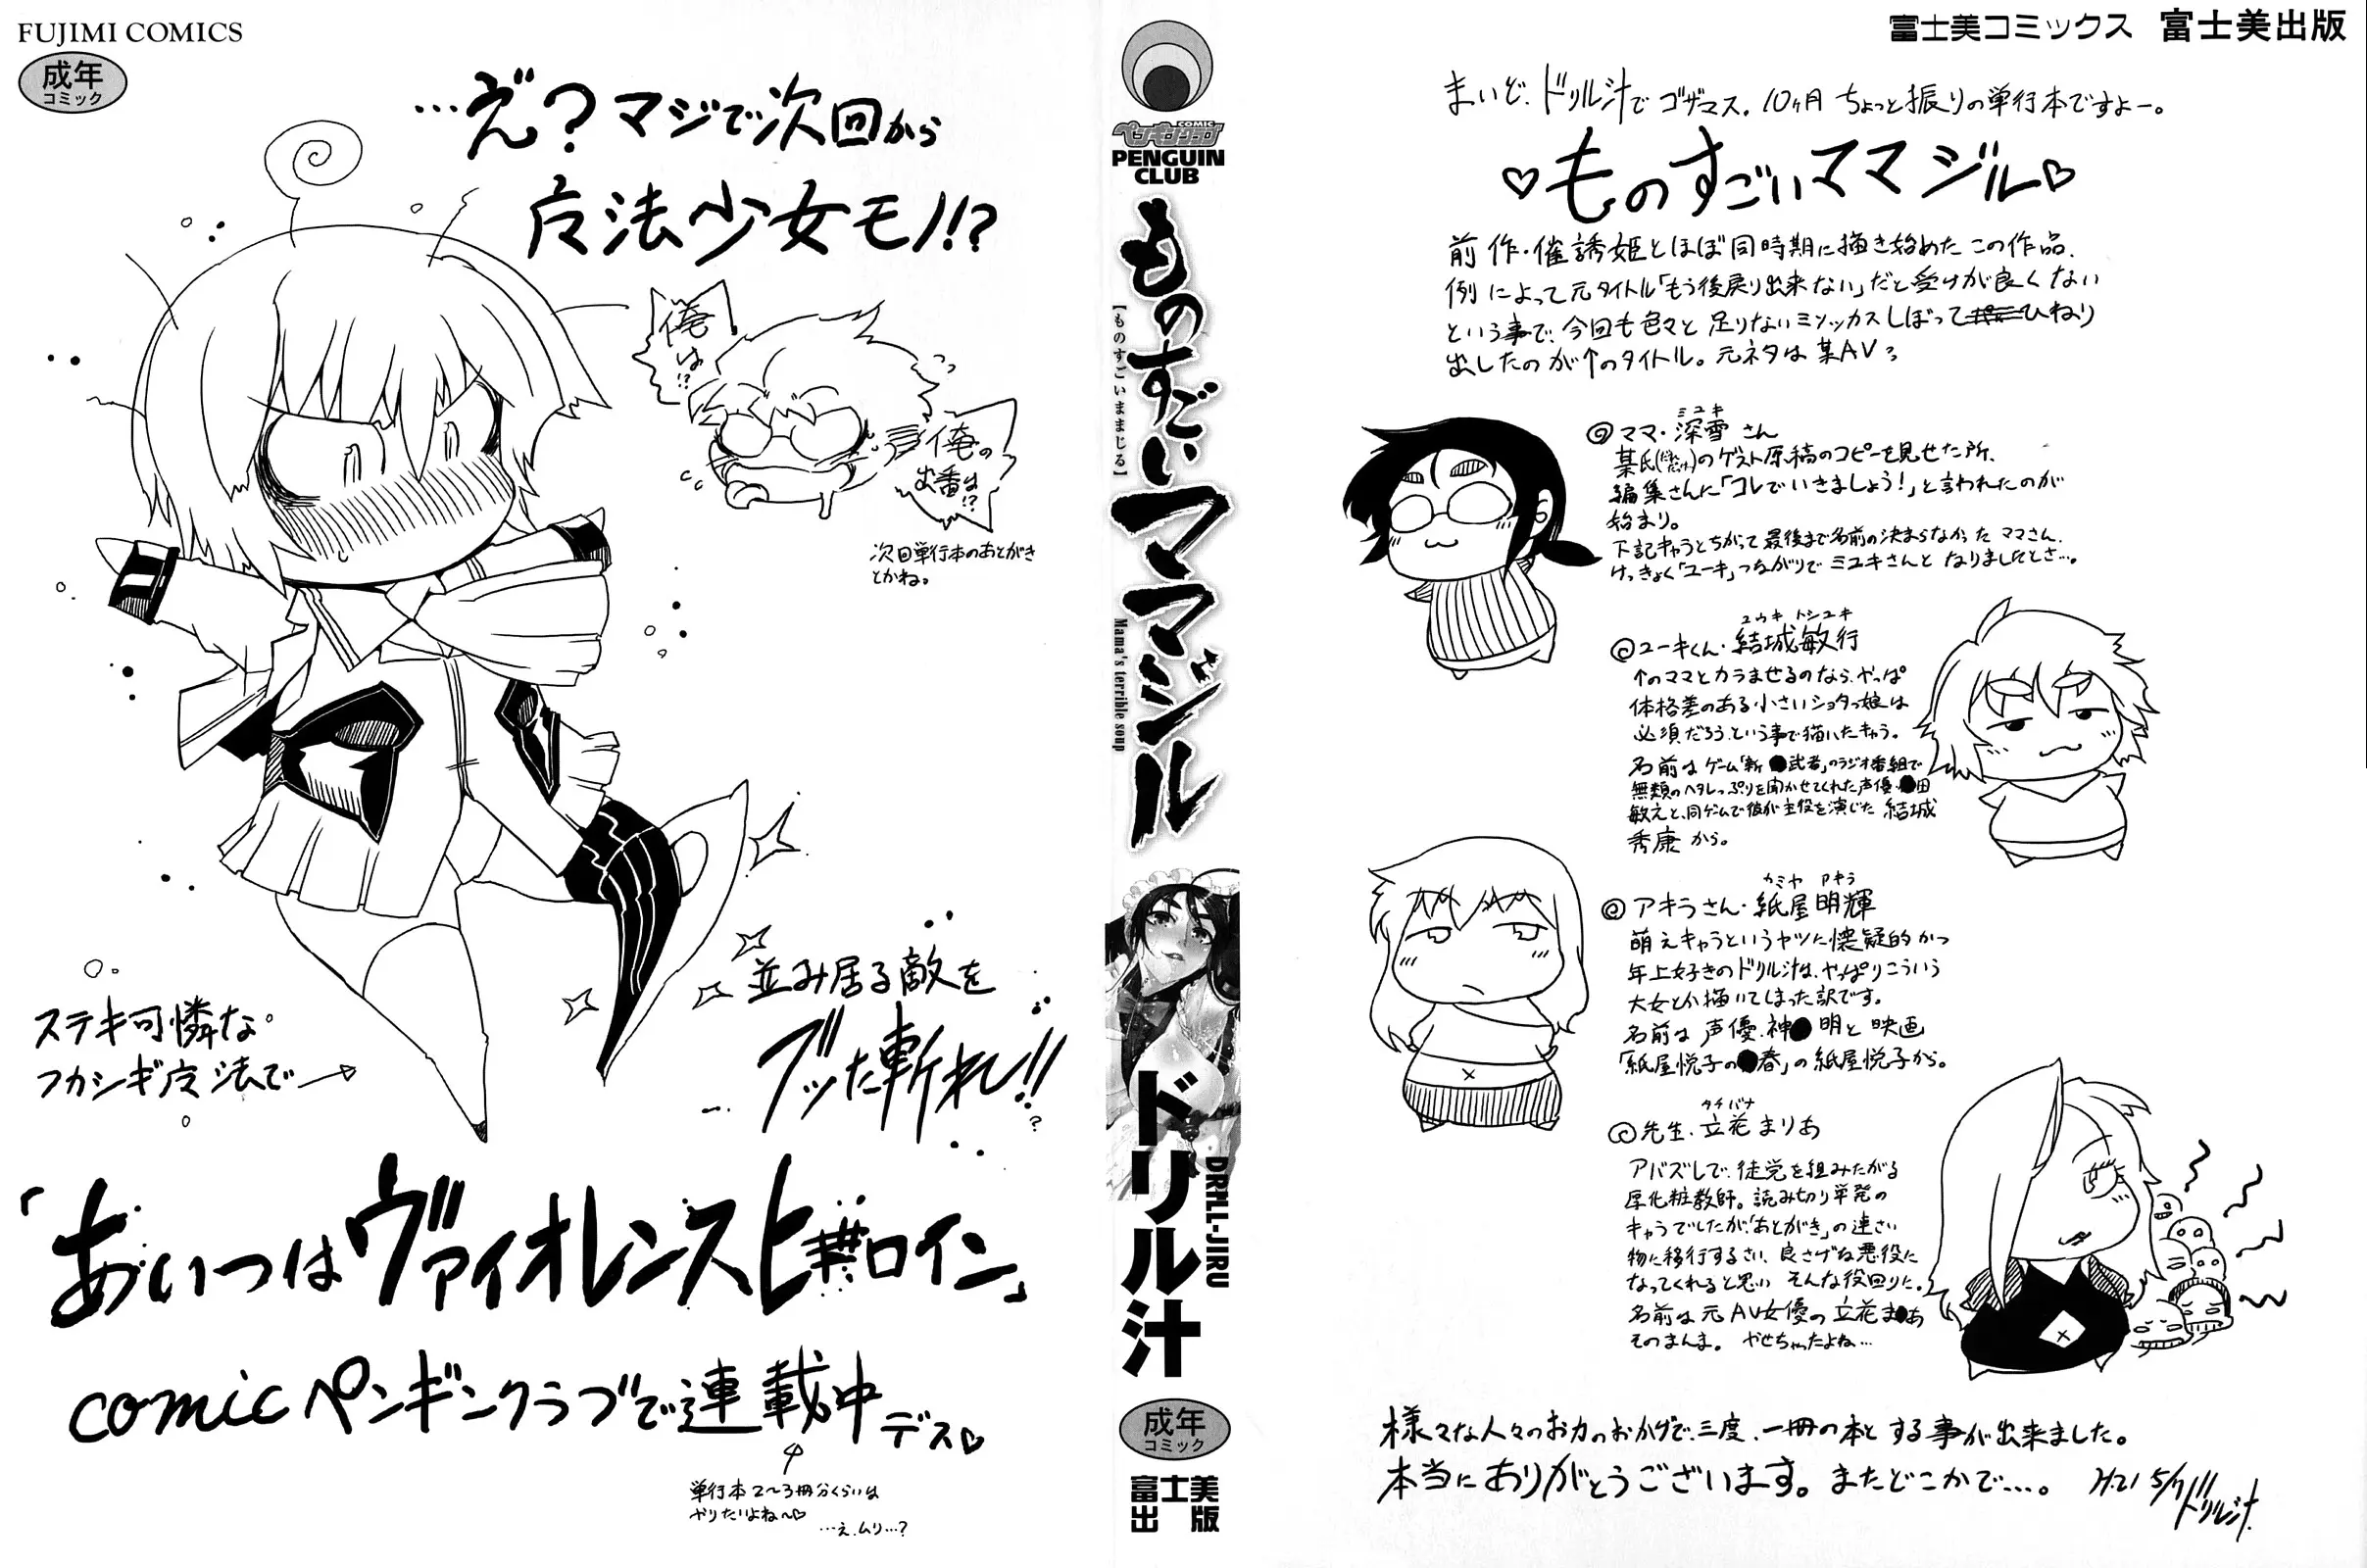 FUJIMI COMICS
成年
コミック
…え゛?マジで次回から
魔法少女モノ!?
俺は!?
俺の
出番は!?
次回単行本のあとがき
とかね。
ステキ可憐な
フカシギ魔法で
並み居る敵を
ブッた斬れ!!
「あいつはヴァイオレンスヒロイン」
comicペンギンクラブで連載中デス♡
単行本2〜3冊分くらいは
やりたいよね〜♡
…え、ムリ…?
COMIC
ペンギンクラブ
PENGUIN
CLUB
ものすごいママジル
【ものすごいままじる】
Mama's terrible soup
ドリル汁
DRILL-JIRU
成年
コミック
富士美
出版
富士美コミックス 富士美出版
まいど、ドリル汁でゴザマス。10ヶ月ちょっと振りの単行本ですよー。
♡ものすごいママジル♡
前作・催誘姫とほぼ同時期に描き始めたこの作品、
例によって元タイトル「もう後戻り出来ない」だと受けが良くない
という事で、今回も色々と足りないミソッカスしぼってひねり
出したのが↑のタイトル。元ネタは某AV
ミユキ
ママ・深雪さん
某氏のゲスト原稿のコピーを見せた所、
編集さんに「コレでいきましょう!」と言われたのが
始まり。
下記キャラとちがって最後まで名前の決まらなかったママさん。
けっきょく「ユーキ」つながりでミユキさんとなりましたとさ…。
ユウキ トシユキ
ユーキくん・結城敏行
↑のママとカラませるのなら、やっぱ
体格差のある小さいショタっ娘は
必須だろう、という事で描いたキャラ。
名前はゲーム「斬●武者」のラジオ番組で
無類のヘタレっぷりを聞かせてくれた声優・●田
敏えと、同ゲームで彼が主役を演じた結城
秀康から。
カミヤ アキラ
アキラさん・紙屋明輝
萌えキャラというヤツに懐疑的かつ
年上好きのドリル汁は、やっぱりこういう
大女とか描いてしまった訳です。
名前は声優・神●明と映画
「紙屋悦子の●春」の紙屋悦子から。
タチバナ
先生・立花まりあ
アバズレで、徒党を組みたがる
厚化粧教師。読み切り単発の
キャラでしたが、「あとがき」の連さい
物に移行するさい、良さげな悪役に
なってくれると思いそんな役回りに。
名前は元AV女優の立花ま●あ
そのまんま。やせちゃったよね…
様々な人々のお力のおかげで、三度、一冊の本とする事が出来ました。
本当にありがとうございます。またどこかで…。 H.21 5/7 ドリル汁